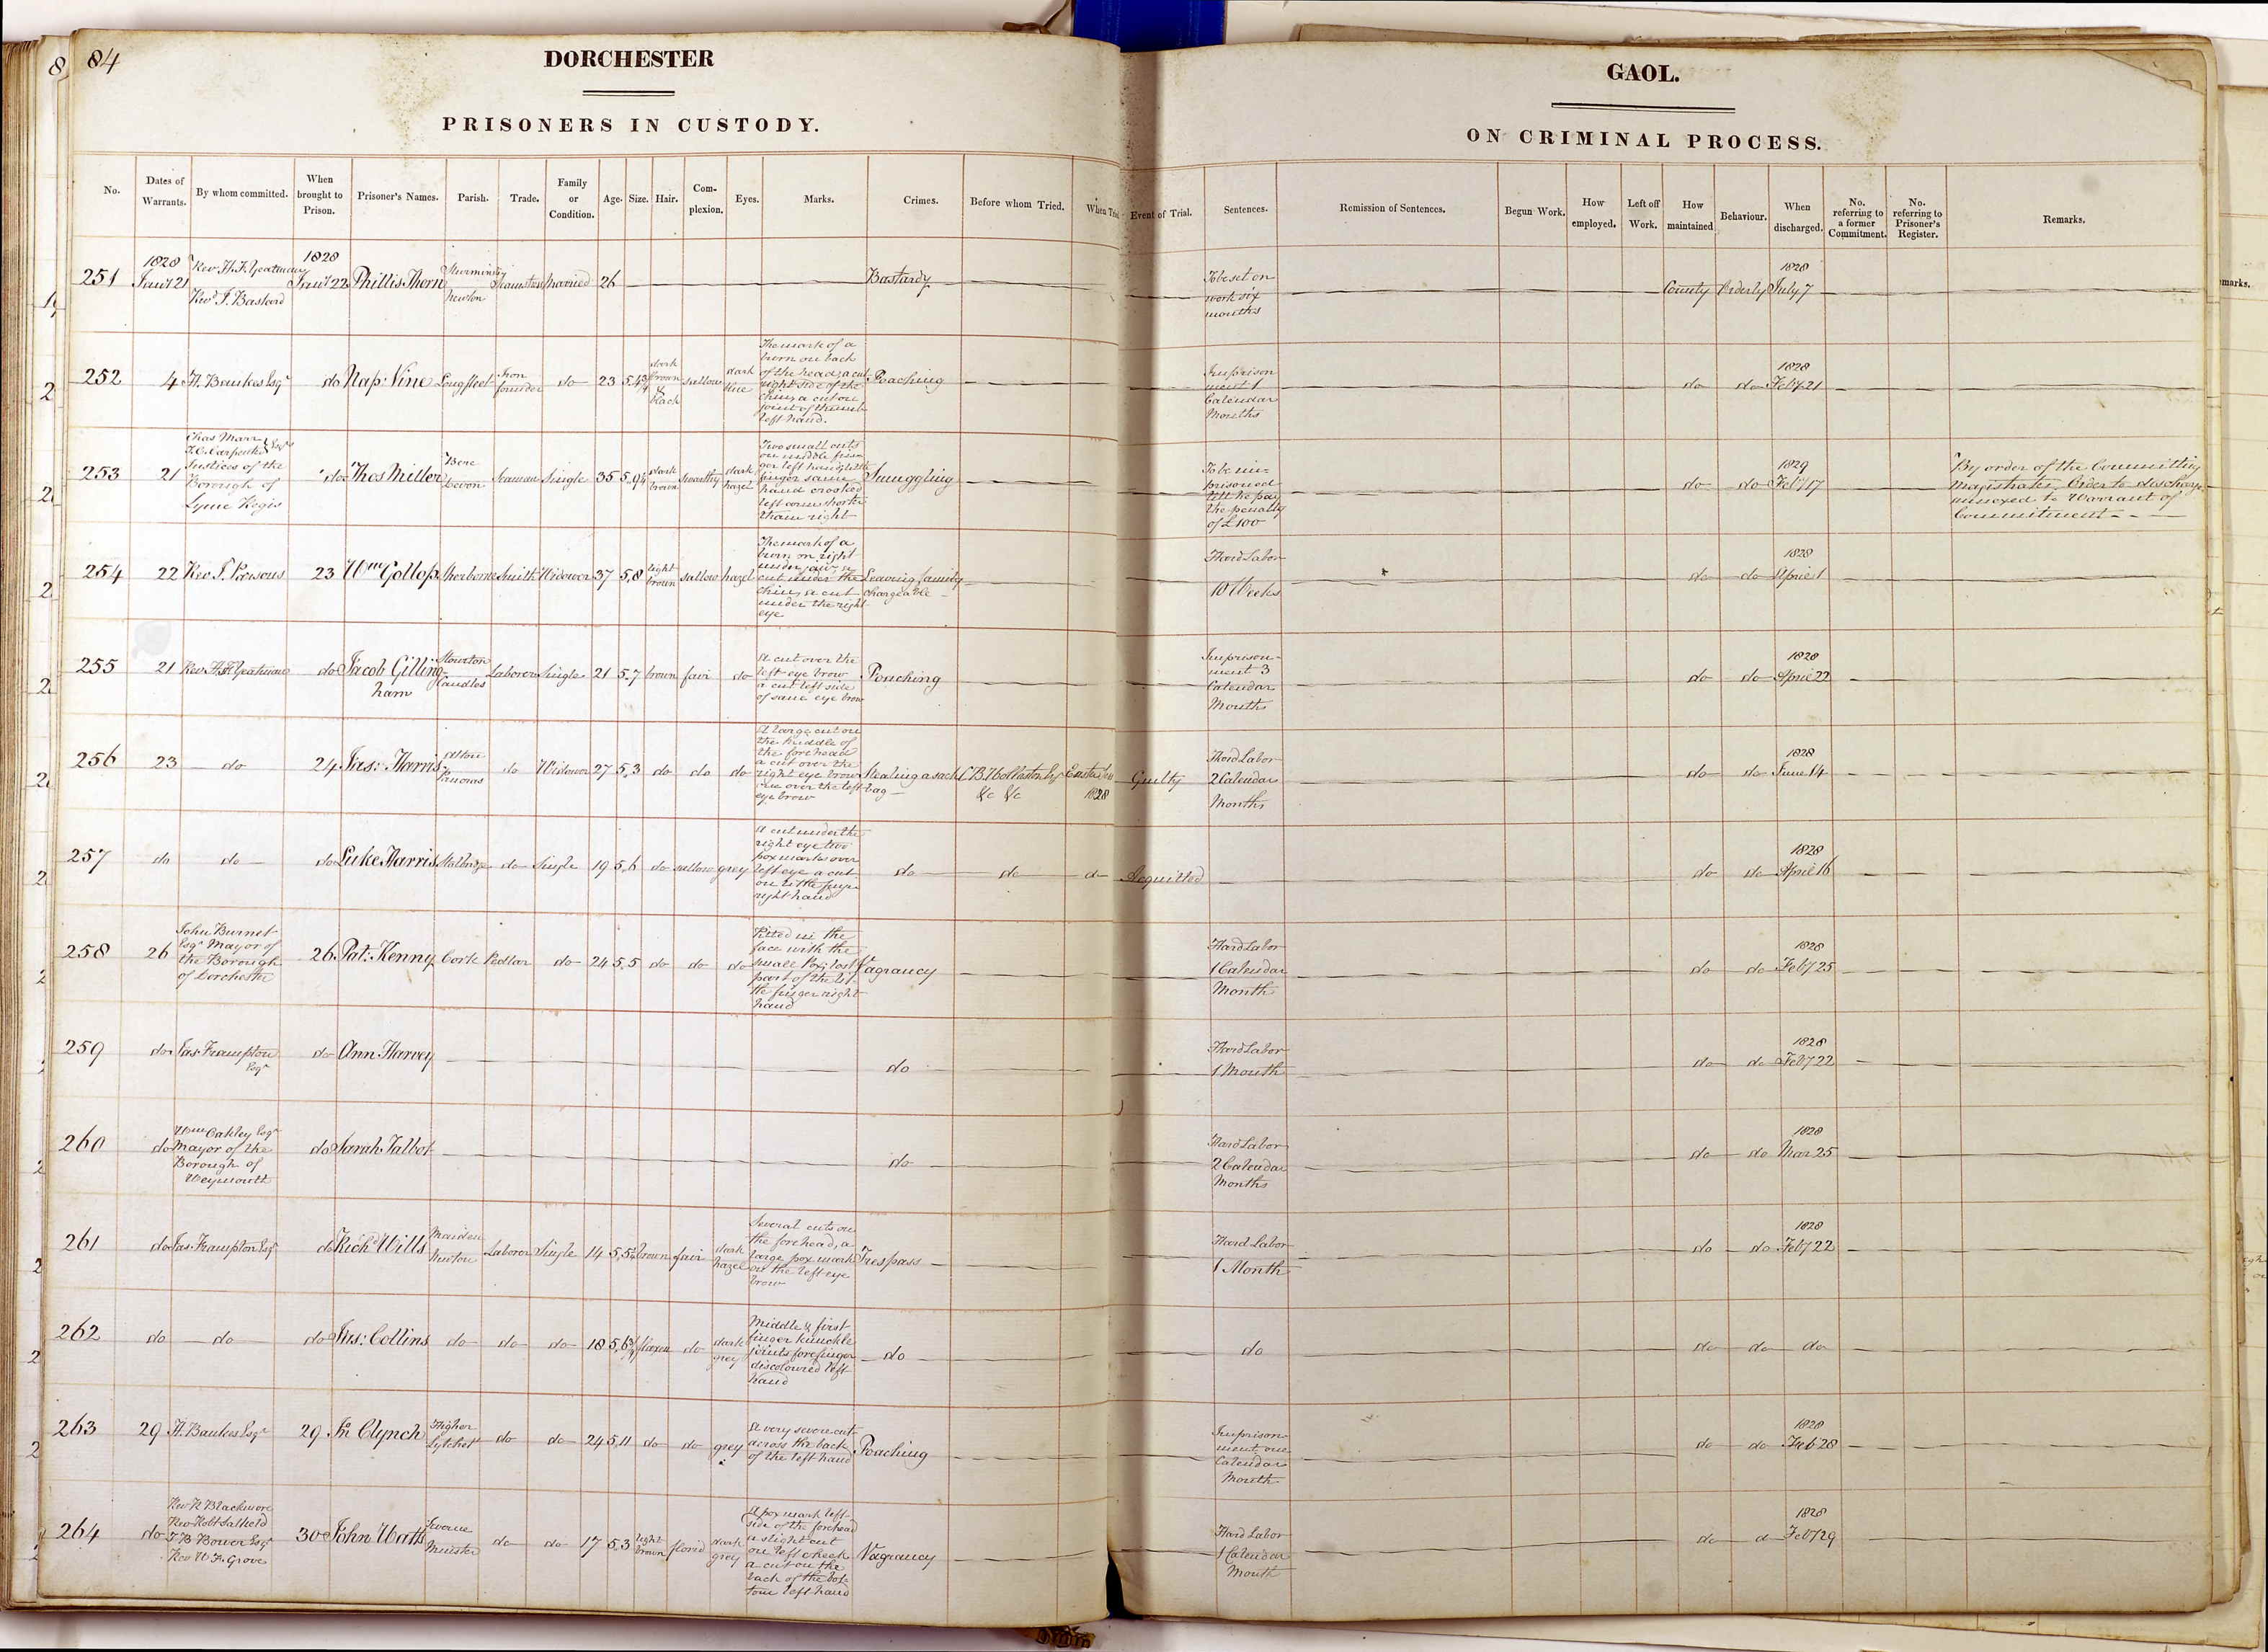 84
DORCHESTER
PRISONERS IN CUSTODY.
GAOL.
ON CRIMINAL PROCESS.
No. Dates of Warrants. By whom committed. When brought to Prison. Prisoner's Names. Parish. Trade. Family or Condition. Age. Size. Hair. Complexion. Eyes. Marks. Crimes. Before whom Tried. When Tried Event of Trial. Sentences. Remission of Sentences. Begun Work. How employed. Left off Work. How maintained Behaviour. When discharged. No. referring to a former Commitment. No. referring to Prisoner's Register. Remarks.
251 1828 Jany 21 Rev H.F. Yeatman Revd J. Bastard 1828 Jany 22 Phillis Thorn Sturminster Newton married 26 Bastardy To be set on work six months County Orderly 1828 July 7
252 4 H. Bankes Esqr do Nap: Vine Longfleet Iron founder do 23 5,4 3/4 dark brown & black sallow dark blue The mark of a burn on back of the head, a cut right side of the chin, a cut on joint of thumb left hand. Poaching Imprisonment 1 Calendar Months do do 1828 Feby 21
253 21 Chas Marr J.C. Carpenter Esqrs Justices of the Borough of Lyme Regis do Thos Miller Bere Devon Seaman Single 35 5,9 1/4 dark brown swarthy dark hazel Two small cuts on middle finger left hand, little finger same hand crooked left arm shorter than right Smuggling To be imprisoned till he pay the penalty of £100 do do 1829 Feby 17 By order of the Committing Magistrates, Order to discharge annexed to Warrant of Commitment
254 22 Rev J. Parsons 23 Wm Gollop Sherborne Smith Widower 37 5,8 light brown sallow hazel The mark of a burn on right under jaw, a cut under the chin, a cut under the right eye Leaving family chargeable Hard Labor 10 Weeks do do 1828 April 1
255 21 Rev H.F. Yeatman do Jacob Gillingham Stourton Caundles Laborer Single 21 5,7 brown fair do A cut over the left eye brow a cut left side of same eye brow Poaching Imprisonment 3 Calendar Months do do 1828 April 22
256 23 do 24 Jas: Harris Alton Pancras do Widower 27 5,3 do do do A large cut on the middle of the forehead a cut over the right eye brow one over the left eye brow Stealing a sack bag C B Wollaston Esqr &c &c Easter 1828 Guilty Hard Labor 2 Calendar Months do do 1828 June 14
257 do do do Luke Harris Stalbridge do Single 19 5,6 do sallow grey A cut under the right eye two pox marks over left eye a cut on little finger right hand do do do Acquitted do do 1828 April 16
258 26 John Burnet Esqr Mayor of the Borough of Dorchester 26 Pat: Kenny Cork Pedlar do 24 5,5 do do do Pitted in the face with the small Pox; lost part of the little finger right hand Vagrancy Hard Labor 1 Calendar Month do do 1828 Feby 25
259 do Jas Frampton Esqr do Ann Harvey do Hard Labor 1 Month do do 1828 Feby 22
260 do Wm Oakley Esqr Mayor of the Borough of Weymouth do Sarah Talbot do Hard Labor 2 Calendar Months do do 1828 Mar 25
261 do Jas Frampton Esqr do Richd Wills Maiden Newton Laborer Single 14 5,5 brown fair dark hazel Several cuts on the forehead, a large pox mark on the left eye brow Trespass Hard Labor 1 Month do do 1828 Feby 22
262 do do do Jas: Collins do do do 18 5,6 3/4 flaxen do dark grey Middle & first finger knuckle joints forefinger discoloured left hand do do do do do
263 29 H. Bankes Esqr 29 Jn Clynch Higher Lytchet do do 24 5,11 do do grey A very severe cut across the back of the left hand Poaching Imprisonment one Calendar Month do do 1828 Feb 28
264 do Rev R Blackmore Rev Robt Salkeld T B Bower Esqr Rev W F. Grove 30 John Watts Iwerne Minster do do 17 5,3 light brown florid dark grey A pox mark left side of the forehead a slight cut on left cheek a cut on the back of the bottom left hand Vagrancy Hard Labor 1 Calendar Month do do 1828 Feby 29